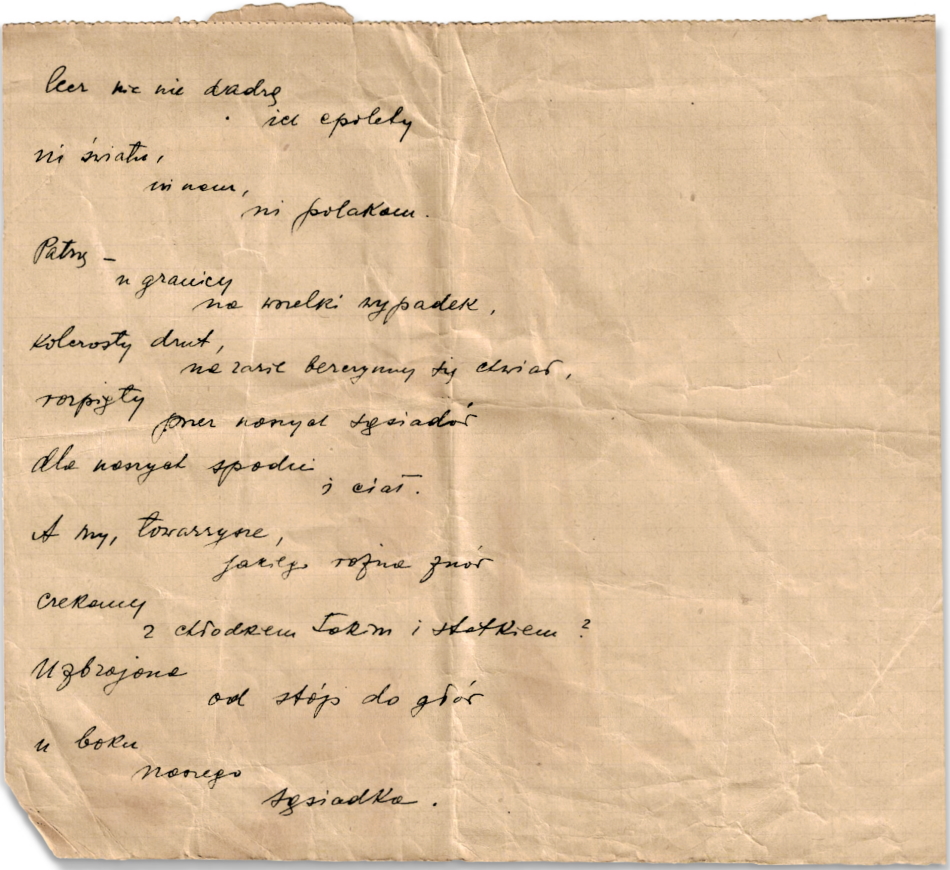 lecz nic nie dadzą
ich epolety
ni światu,
ni nam,
ni polakom.
Patrzę –
u granicy
na wszelki wypadek,
kolczasty drut,
na razie bezczynny się chwiał,
rozpięty
przez naszych sąsiadów
dla naszych spodni
i ciał.
A my, towarzysze,
jakiego rożna znów
czekamy
z chłodkiem takim i statkiem?
Uzbrojona
od stóp do głów
u boku
naszego
sąsiadka.